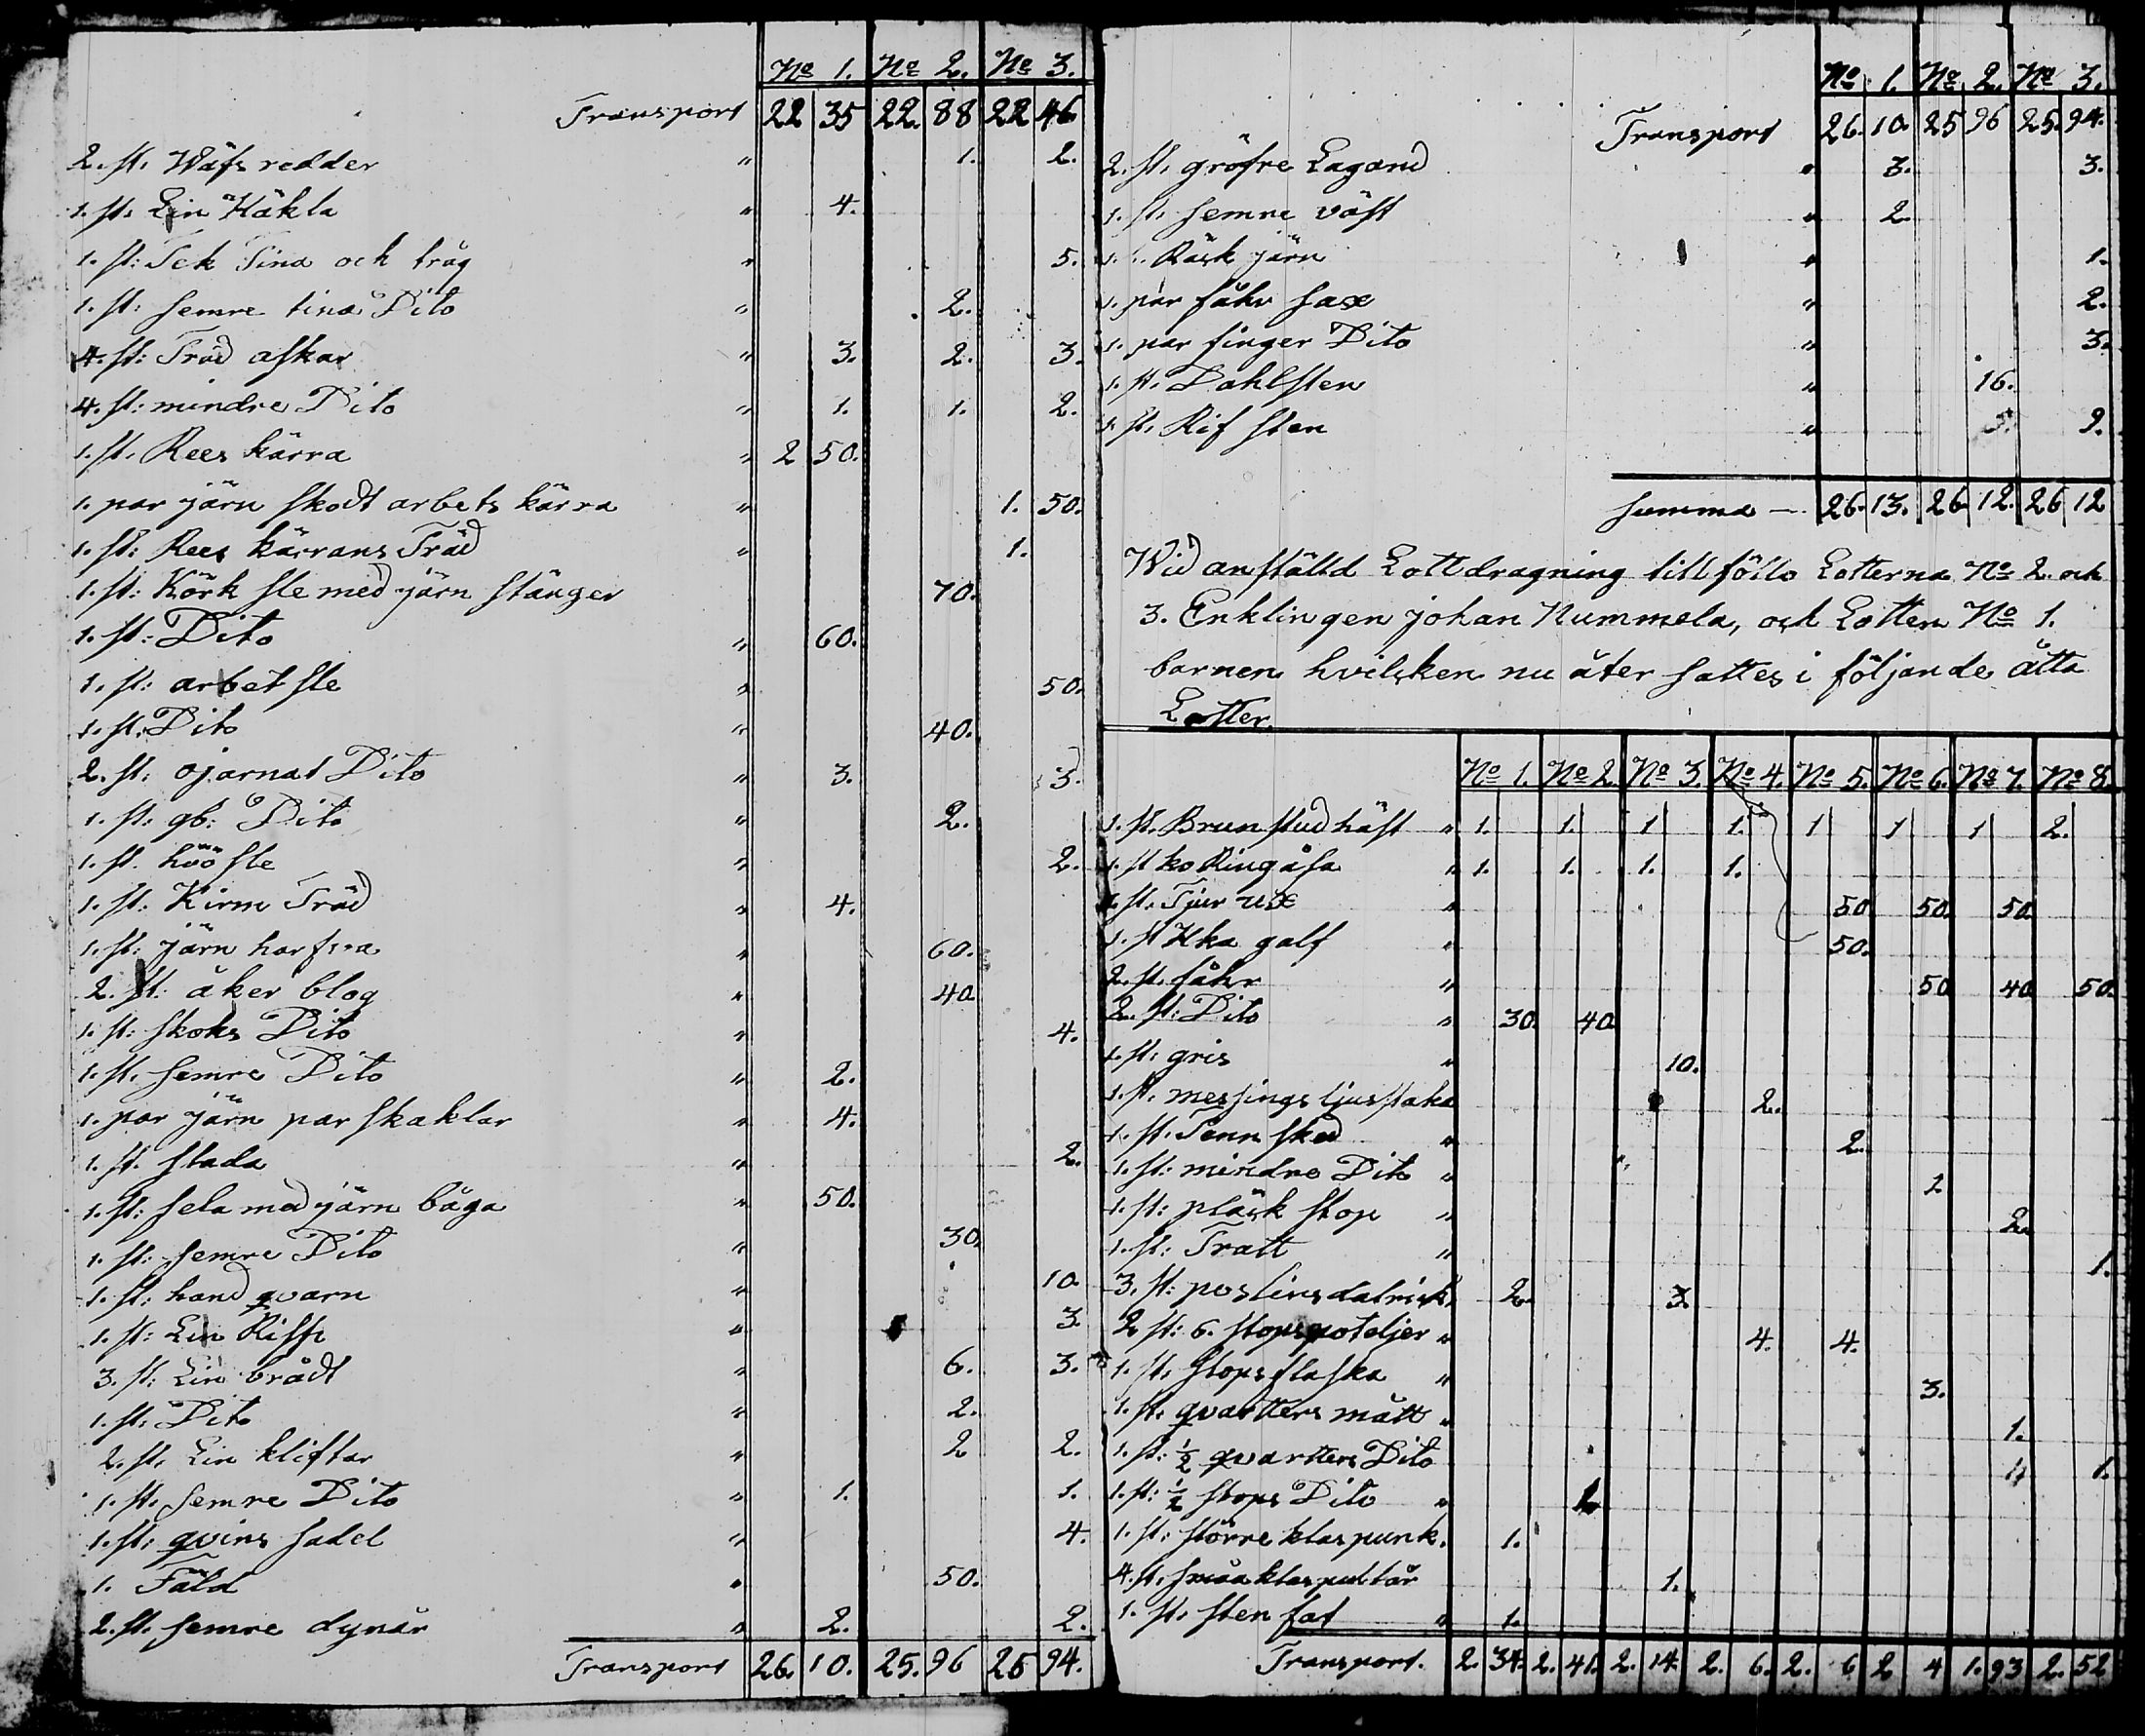 No 1. No 2. No 3.
Transport 22 35 22. 88 22 46.
2. st. Wäfs redder " 1. 2.
1. st. Lin Häkla " 4.
1. st: Tek Tina och tråg " 5.
1. st: semre tina Dito " 2.
4. st: Träd askar " 3. 2. 3.
4. st: mindre Dito " 1. 1. 2.
1. st. Rees kärra " 2 50.
1. par järn skodt arbets kärra " 1. 50.
1. st: Rees kärrans Träd " 1.
1. st: Körk sle med järn stänger 70.
1. st: Dito " 60.
1. st: arbet sle " 50.
1. st: Dito " 40.
2. st: ojarnat Dito " 3. 3.
1. st: gb: Dito " 2.
1. st. höö sle " 2.
1. st: Kirm Träd " 4.
1. st: järn harfva " 60.
2. st: åker blog " 40
1. st: skoks Dito " 4.
1. st. semre Dito " 2.
1. par järn par skaklar " 4.
1. st. slada " 2.
1. st: sela med järn båga " 50.
1. st: semre Dito " 30.
1. st: hand qvarn " 10.
1. st: Lin Riste " 3.
3. st: Lin brådt " 6. 3.
1. st: Dito " 2.
2. st. Lin kliftar " 2 2.
1. st. semre Dito " 1. 1.
1. st: qvins sadel " 4.
1. Fäld " 50.
2. st. semre dynär " 2. 2.
Transport 26. 10. 25. 96 25 94.
No 1. No 2. No 3.
Transport 26. 10. 25 96 25. 94.
2. st. gröfre Lagand " 3. 3.
1. st. semre väst " 2
Räsk järn " 1.
1. par fåhr sax " 2.
1. par finger Dito " 3.
1. st. Dahlsten " 16.
1. st. Rif sten " 2.
summa — 26. 13. 26 12. 26 12
Wid anställd Lottdragning tillföllo Lotterna No 2. och
3. Enklingen johan Nummela, och Lotten No 1.
barnen hvilken nu åter sattes i följande åtta
Lotter.
No 1. No 2. No 3. No 4. No 5. No 6. No 7. No 8.
1. st. Brun stud häst " 1. 1. 1 1. 1 1 1 2.
1. st ko Ringåsa " 1. 1. 1. 1.
1. st. Tjur ux " 50 50 50
1. st Kka galf " 50.
2. st. fåhr " 50 40 50.
2. st: Dito " 30. 40
1. st. gris " 10.
1. st. messings ljusstaka 2.
1. st. Tenn sked " 2.
1. st: mindre Dito " 2
1. st: pläck stop " 2.
1. st: Tratt " 1.
3. st: poslins dalrick 2. 3
2 st: 6. stops poteljer " 4. 4.
1. st. stops flaska " 3.
1. st. qvarters mått " 1.
1. st: ½ qvarters Dito 1.
1. st: ½ stops Dito "
1. st: större klas punk. 1.
4. st. småa klas puttår 1.
1. st. sten fat " 1.
Transport. 2. 34. 2. 41. 2. 14. 2. 6. 2. 6 2 4 1. 93 2. 52